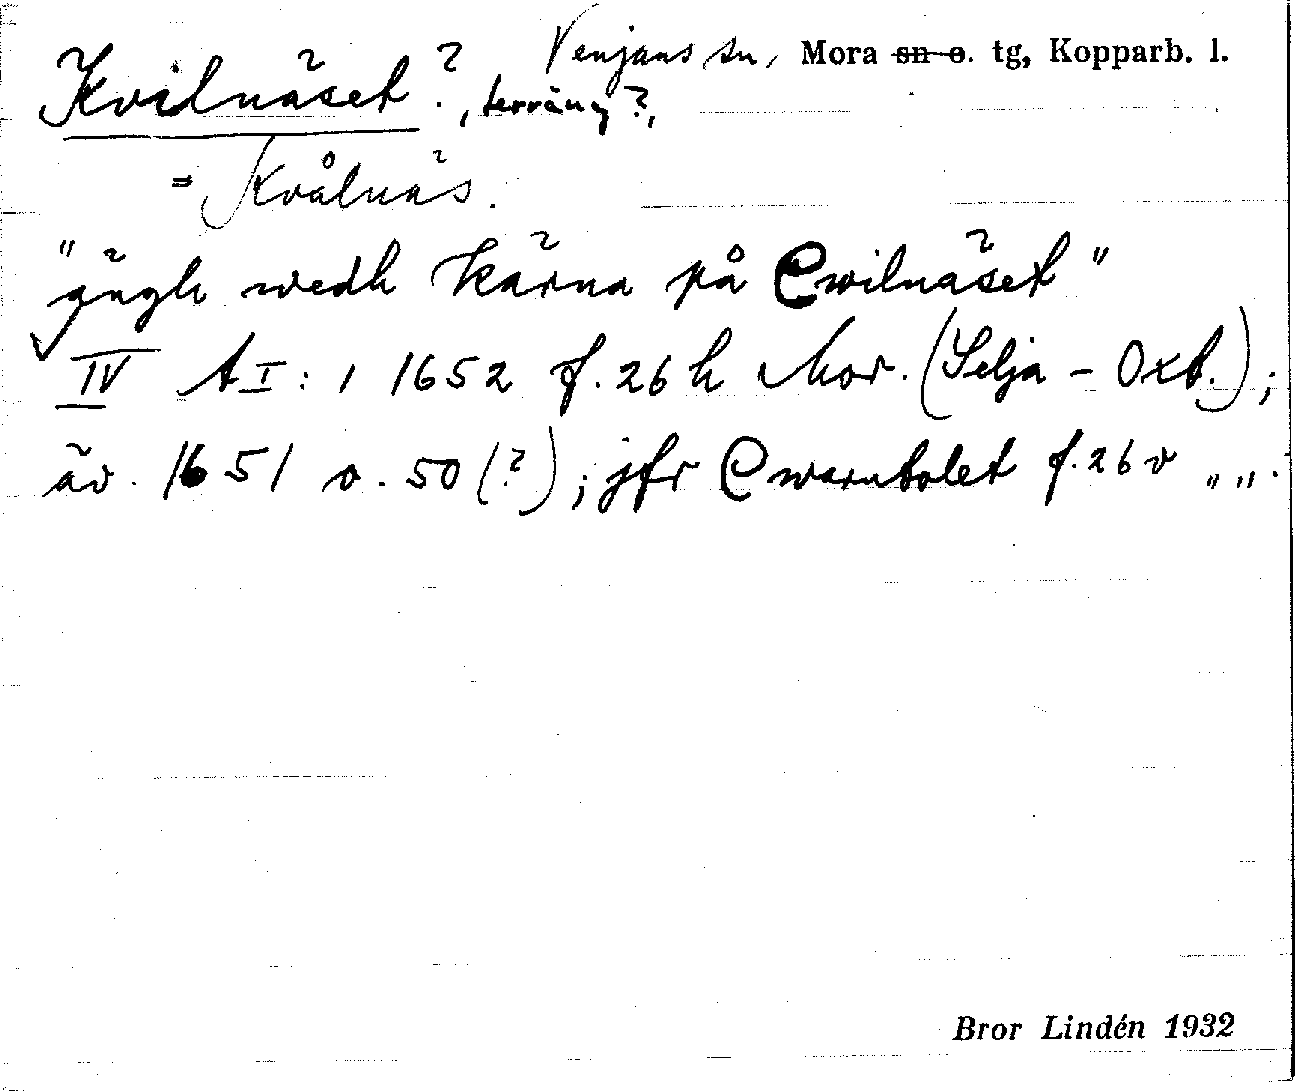 Venjans sn, Mora sn o. tg, Kopparb. l.
Kvilnäset?, terräng?,
= Kvålnäs.
"ängh wedh Kärna på Cwilnäset"
IV AI: 1 1652 f. 26 h Mor. (Selja - Oxb.);
äv. 1651 o. 50 (?); jfr Cwarnbolet f. 26 v „ „.
Bror Lindén 1932